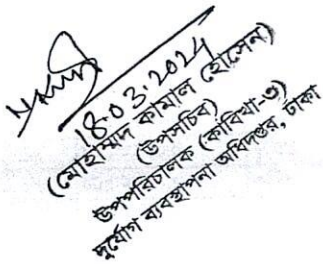 18.03.2024
(মোহাম্মদ কামাল হোসেন)
(উপসচিব)
উপপরিচালক (কাবিখা-৩)
দুর্যোগ ব্যবস্থাপনা অধিদপ্তর, ঢাকা